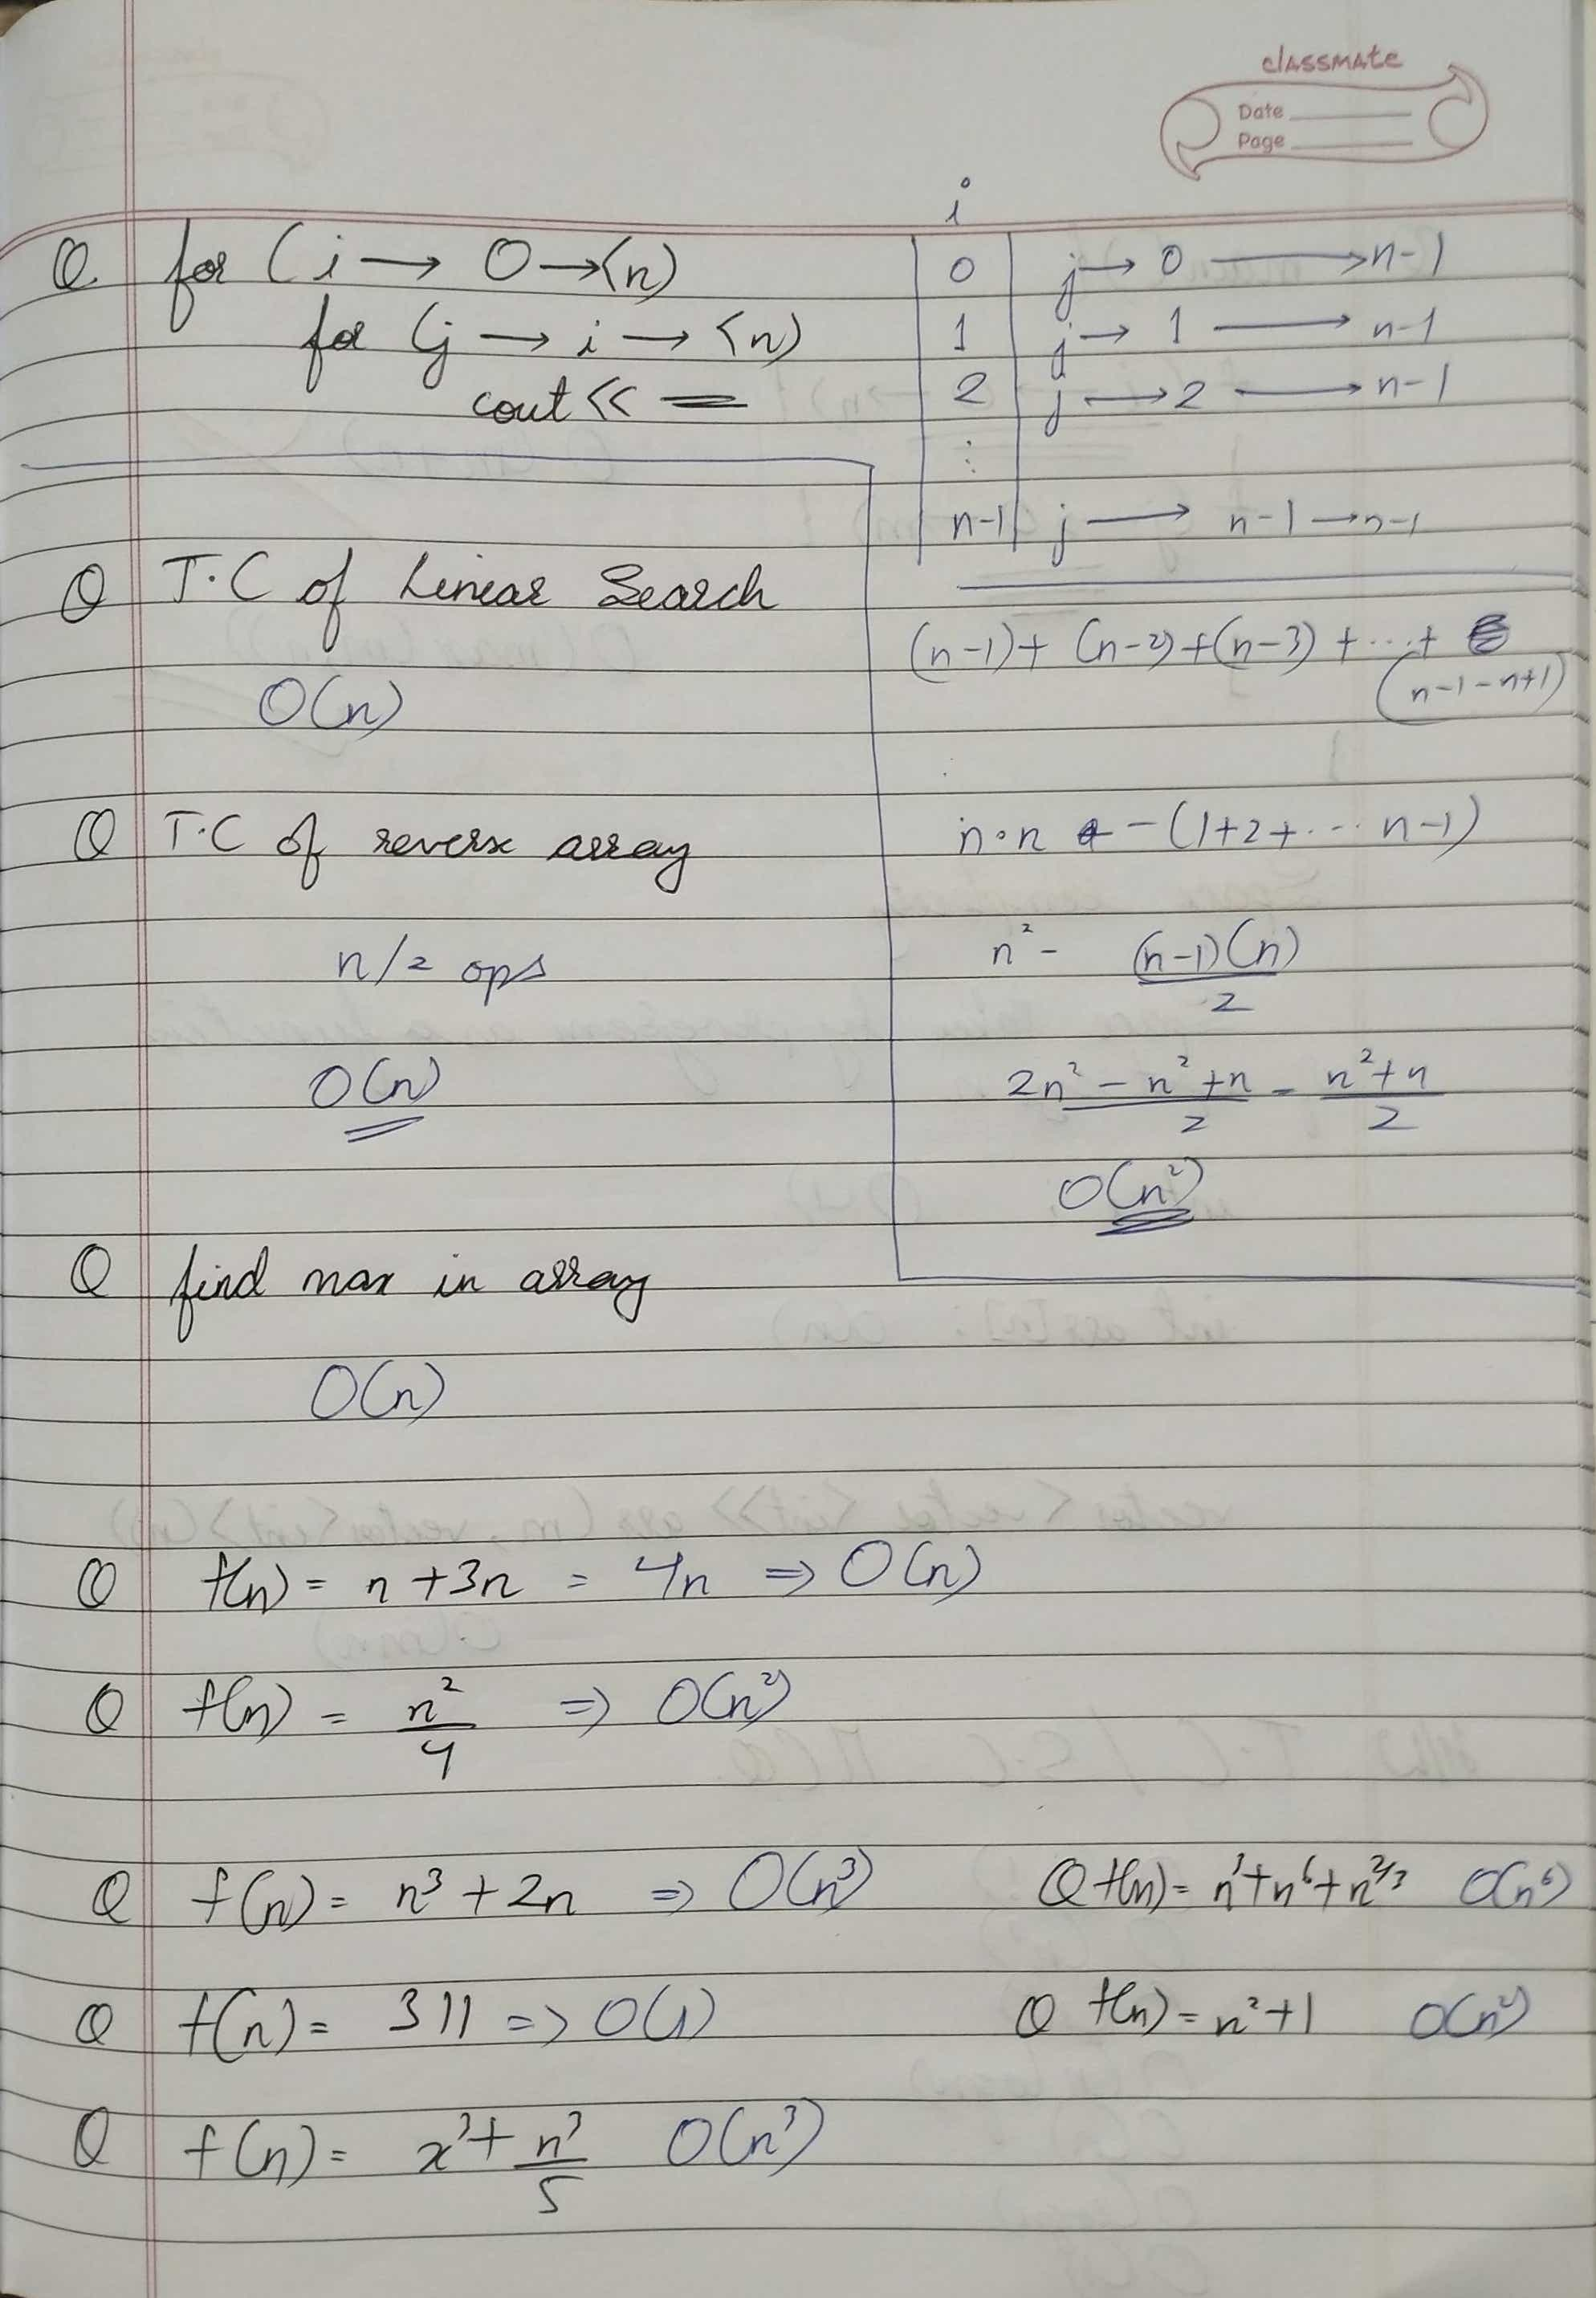 classmate
Date
Page
Q for (i → 0 → <n)
for (j → i → <n)
cout <<
i
0 j → 0 → n-1
1 j → 1 → n-1
2 j → 2 → n-1
⋮
n-1 j → n-1 → n-1
(n-1) + (n-2) + (n-3) + ... +
(n-1-n+1)
n·n - (1+2+... n-1)
n² - (n-1)(n)/2
2n² - n² + n / 2 = n² + n / 2
O(n²)
Q T.C of Linear Search
O(n)
Q T.C of reverse array
n/2 ops
O(n)
Q find max in array
O(n)
Q f(n) = n + 3n = 4n ⇒ O(n)
Q f(n) = n²/4 ⇒ O(n²)
Q f(n) = n³ + 2n ⇒ O(n³)
Q f(n) = n³ + n⁶ + n^2/3 O(n⁶)
Q f(n) = 311 => O(1)
Q f(n) = n² + 1 O(n²)
Q f(n) = x³ + n³/5 O(n³)